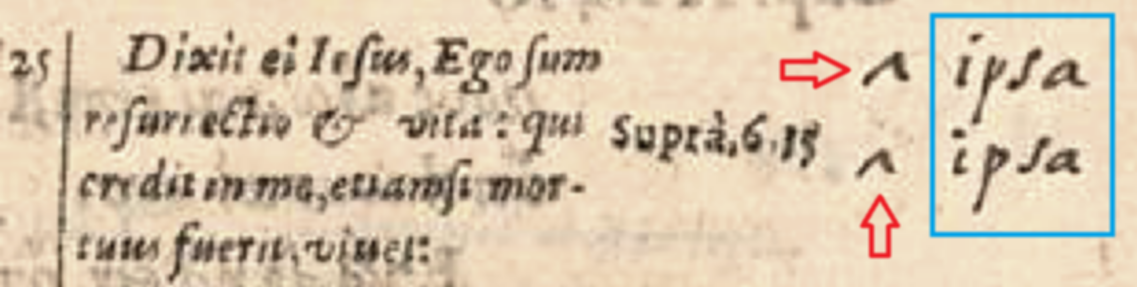 25 Dixit ei Iesus, Ego sum ʌ ipsa
resurrectio & vita : qui Suprà, 6.35
credit in me, etiamsi mor- ʌ ipsa
tuus fuerit, vivet: